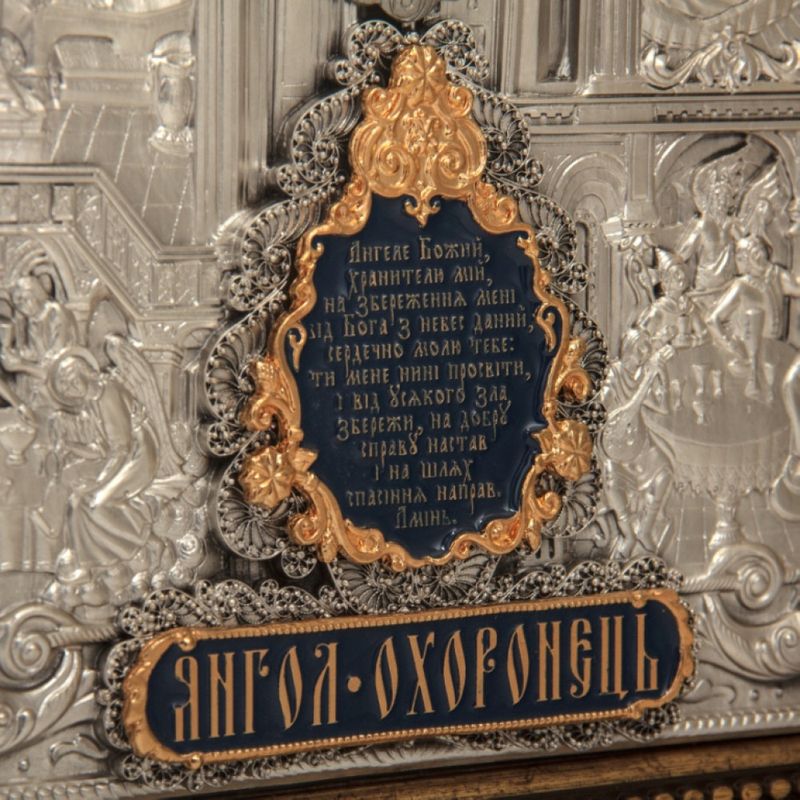 Ангеле Божий,
хранителю мій,
на збереження мені
від Бога з небес даний,
сердечно молю тебе:
ти мене нині просвіти,
і від усякого зла
збережи, на добру
справу настав
і на шлях
спасіння направ.
Амінь.
ЯНГОЛ·ОХОРОНЕЦЬ